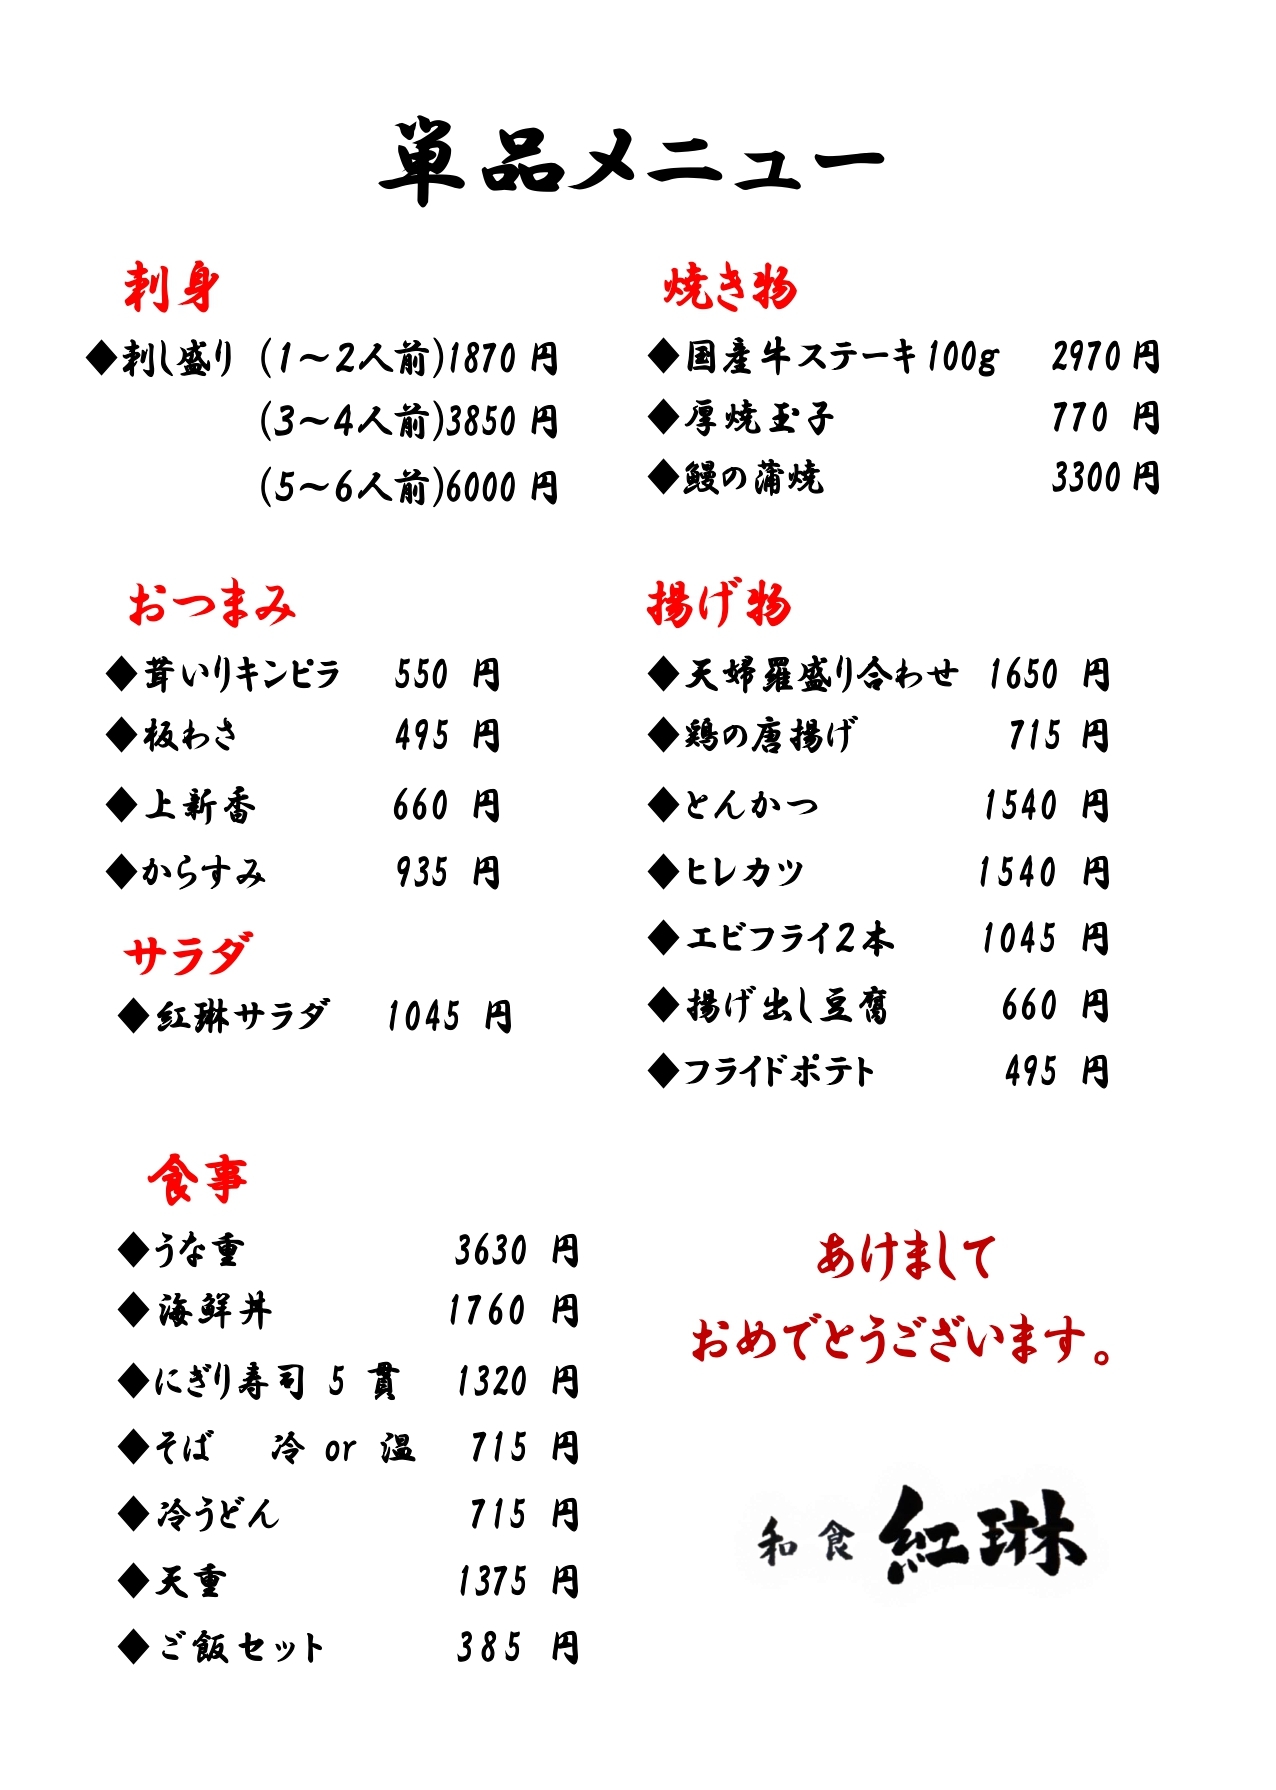 単品メニュー
刺身
◆刺し盛り (1～2人前)1870 円
(3～4人前)3850 円
(5～6人前)6000 円
おつまみ
◆茸いりキンピラ 550 円
◆板わさ 495 円
◆上新香 660 円
◆からすみ 935 円
サラダ
◆紅琳サラダ 1045 円
食事
◆うな重 3630 円
◆海鮮丼 1760 円
◆にぎり寿司 5 貫 1320 円
◆そば 冷 or 温 715 円
◆冷うどん 715 円
◆天重 1375 円
◆ご飯セット 385 円
焼き物
◆国産牛ステーキ100g 2970 円
◆厚焼玉子 770 円
◆鰻の蒲焼 3300 円
揚げ物
◆天婦羅盛り合わせ 1650 円
◆鶏の唐揚げ 715 円
◆とんかつ 1540 円
◆ヒレカツ 1540 円
◆エビフライ2本 1045 円
◆揚げ出し豆腐 660 円
◆フライドポテト 495 円
あけまして
おめでとうございます。
和食 紅琳